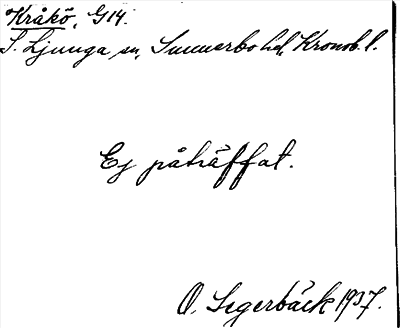 Kråkö, G14.
S. Ljunga sn, Sunnerbo hd, Kronob. l.
Ej påträffat.
O. Segerbäck 1937.